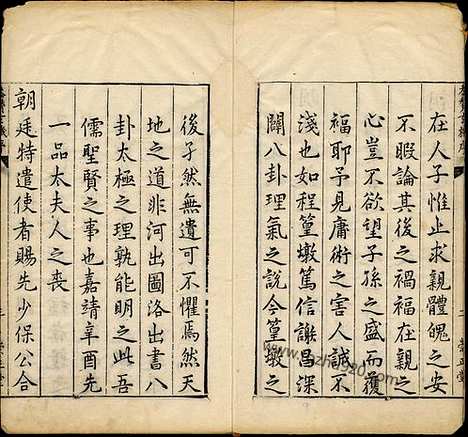 在人子惟止求親體魄之安
不暇論其後之禍福在親之
心豈不欲望子孫之盛而獲
福耶予見庸術之害人誠不
淺也如程篁墩篤信謝昌深
闢八卦理氣之說今篁墩之
後孑然無遺可不懼焉然天
地之道非河出圖洛出書八
卦太極之理孰能明之此吾
儒聖賢之事也嘉靖辛酉先
一品太夫人之喪
朝廷特遣使者賜先少保公合